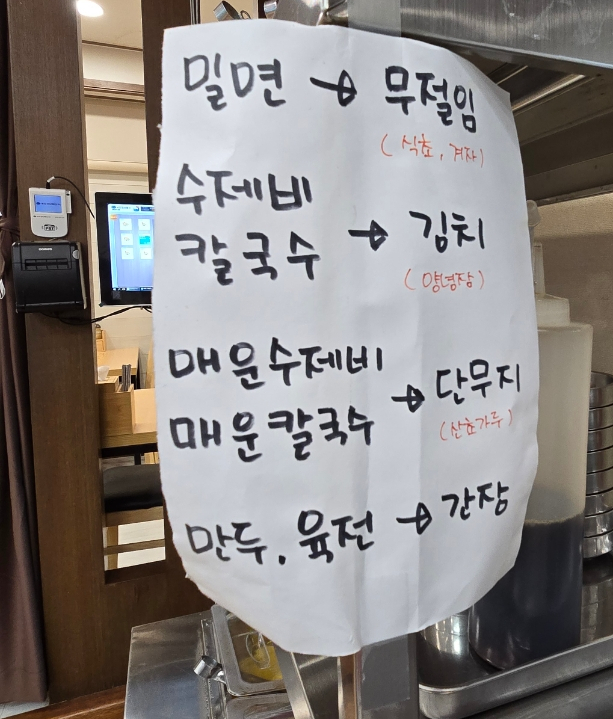 밀면 → 무절임
(식초, 겨자)
수제비
칼국수 → 김치
(양념장)
매운수제비
매운칼국수 → 단무지
(산초가루)
만두, 육전 → 간장